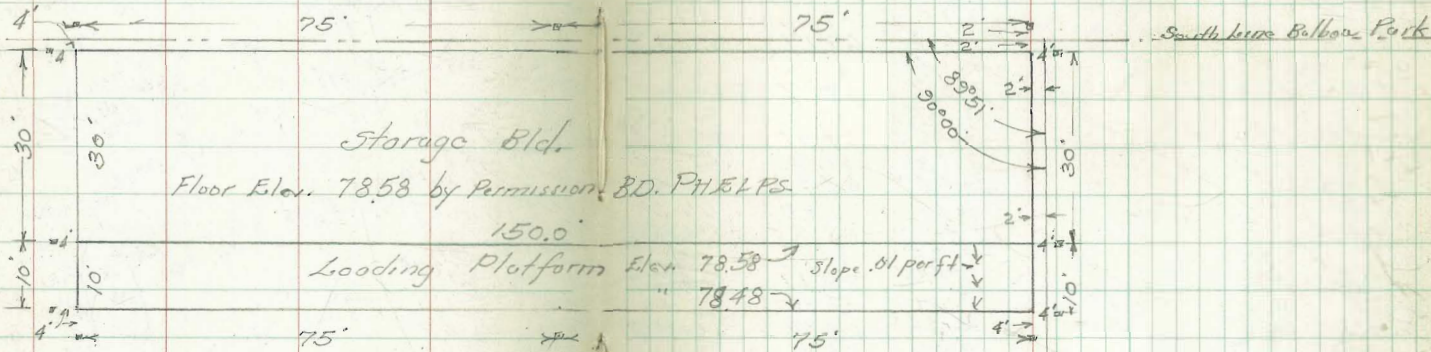 4' 75' 75' 2'
2' 4' South Line Balboa Park
4'
2'
89°51'
90°00'
30' 30' 30'
Storage Bld.
Floor Elev. 78.58 by Permission BD. PHELPS
2'
150.0'
4' 4'
Loading Platform Elev. 78.58 Slope .01 per ft.
10' 10' 10'
" 78.48
4' 4'
4' 4'
75' 75'